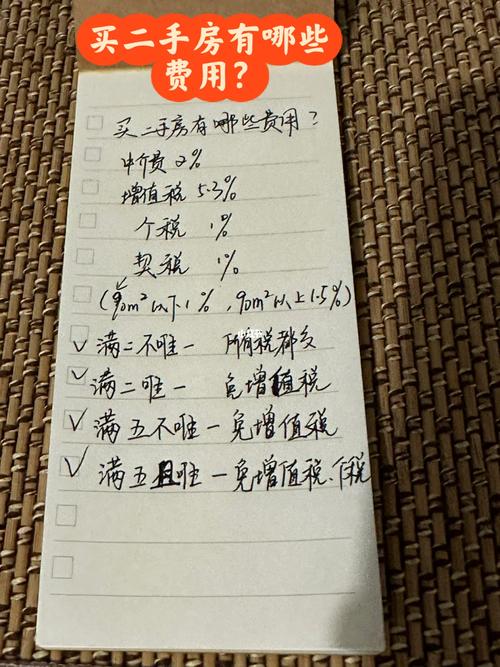 买二手房有哪些
费用？
买二手房有哪些费用？
中介费 2%
增值税 5.3%
个税 1%
契税 1%
(90m²以下1%，90m²以上1.5%)
满二不唯一 所有税都交
满二唯一 免增值税
满五不唯一免增值税
满五且唯一免增值税、个税